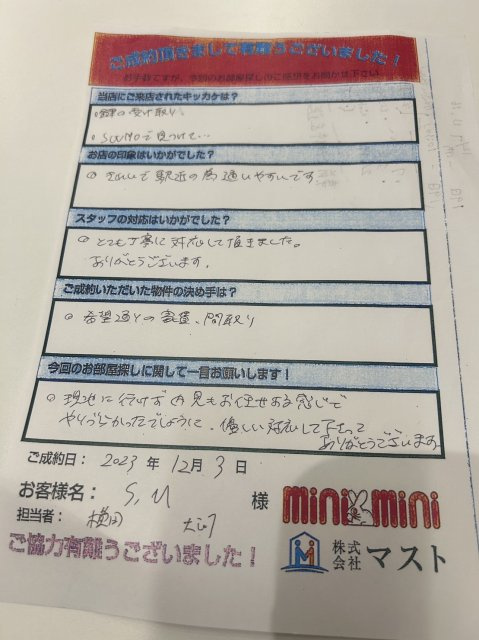 ご成約頂きまして有難うございました！
お手数ですが、今回のお部屋探しのご感想をお聞かせ下さい
当店にご来店されたキッカケは？
・鍵の受け取り
・SUUMOで見つけて…
お店の印象はいかがでした？
◎きれいで駅近の為通いやすいです
スタッフの対応はいかがでした？
◎とても丁寧に対応して頂きました。
ありがとうございます。
ご成約いただいた物件の決め手は？
◎希望通りの家賃、間取り
今回のお部屋探しに関して一言お願いします！
◎現地に行けず内見もお任せする感じで
やりづらかったでしょうに、優しい対応して下さって
ありがとうございます
ご成約日： 2023 年 12月 3 日
お客様名： S, U 様
担当者： 横田
minimini
ご協力有難うございました！
株式会社 マスト